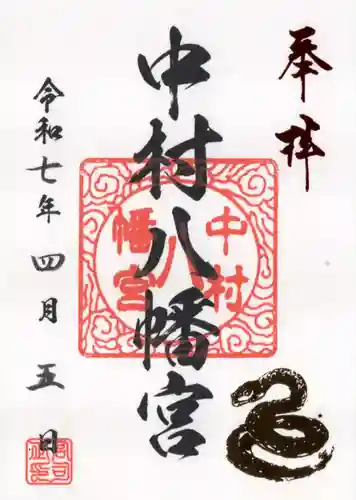 奉拝
中村八幡宮
中村
八
幡宮
令和七年四月五日